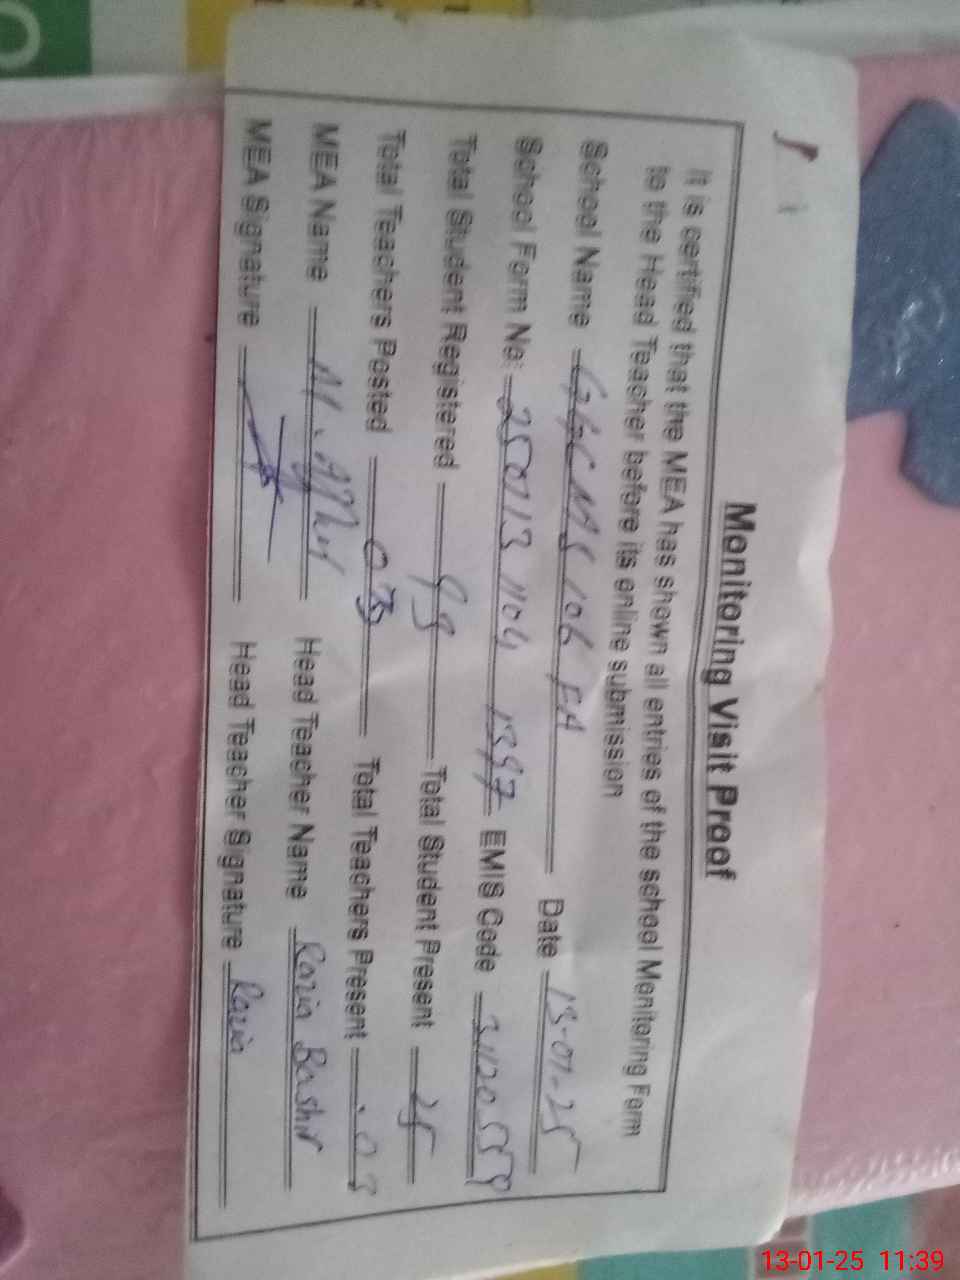 Monitoring Visit Proof
It is certified that the MEA has shown all entries of the school Monitoring Form
to the Head Teacher before its online submission
School Name 106 FA Date 13-01-25
School Form No: 250113 1104 1397 EMIS Code
Total Student Registered Total Student Present 25
Total Teachers Posted 03 Total Teachers Present 03
MEA Name Head Teacher Name Razia Bashir
MEA Signature Head Teacher Signature Razia
13-01-25 11:39